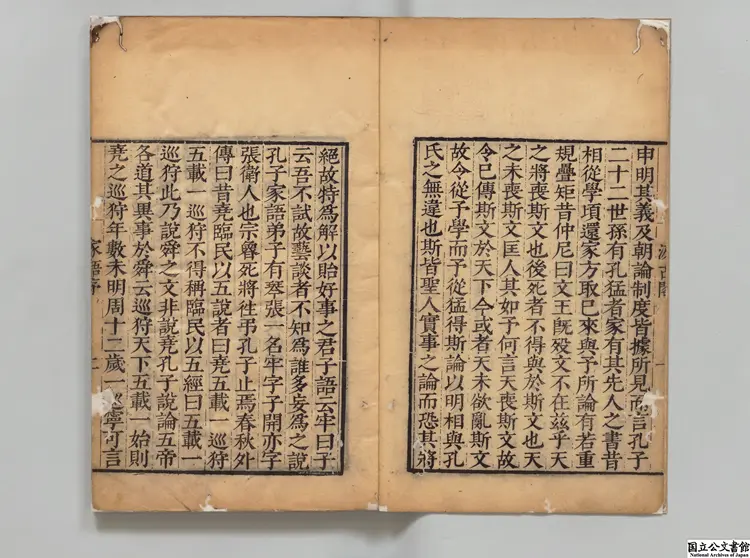 申明其義及朝論制度皆據所見而言孔子
二十二世孫有孔猛者家有其先人之書昔
相從學頃還家方取已來與予所論有若重
規疊矩昔仲尼曰文王旣歿文不在茲乎天
之將喪斯文也後死者不得與於斯文也天
之未喪斯文匡人其如予何言天喪斯文故
令已傳斯文於天下今或者天未欲亂斯文
故令從予學而予從猛得斯論以明相與孔
氏之無違也斯皆聖人實事之論而恐其將
絕故特爲解以貽好事之君子語云牢曰子
云吾不試故藝談者不知爲誰多妄爲之說
孔子家語弟子有琴張一名牢字子開亦字
張衛人也宗魯死將往弔孔子止焉春秋外
傳曰昔堯臨民以五說者曰堯五載一巡狩
五載一巡狩不得稱臨民以五經曰五載一
巡狩此乃說舜之文非說堯孔子說論五帝
各道其異事於舜云巡狩天下五載一始則
堯之巡狩年數未明周十二歲一巡寧可言
家語序
二
国立公文書館
National Archives of Japan